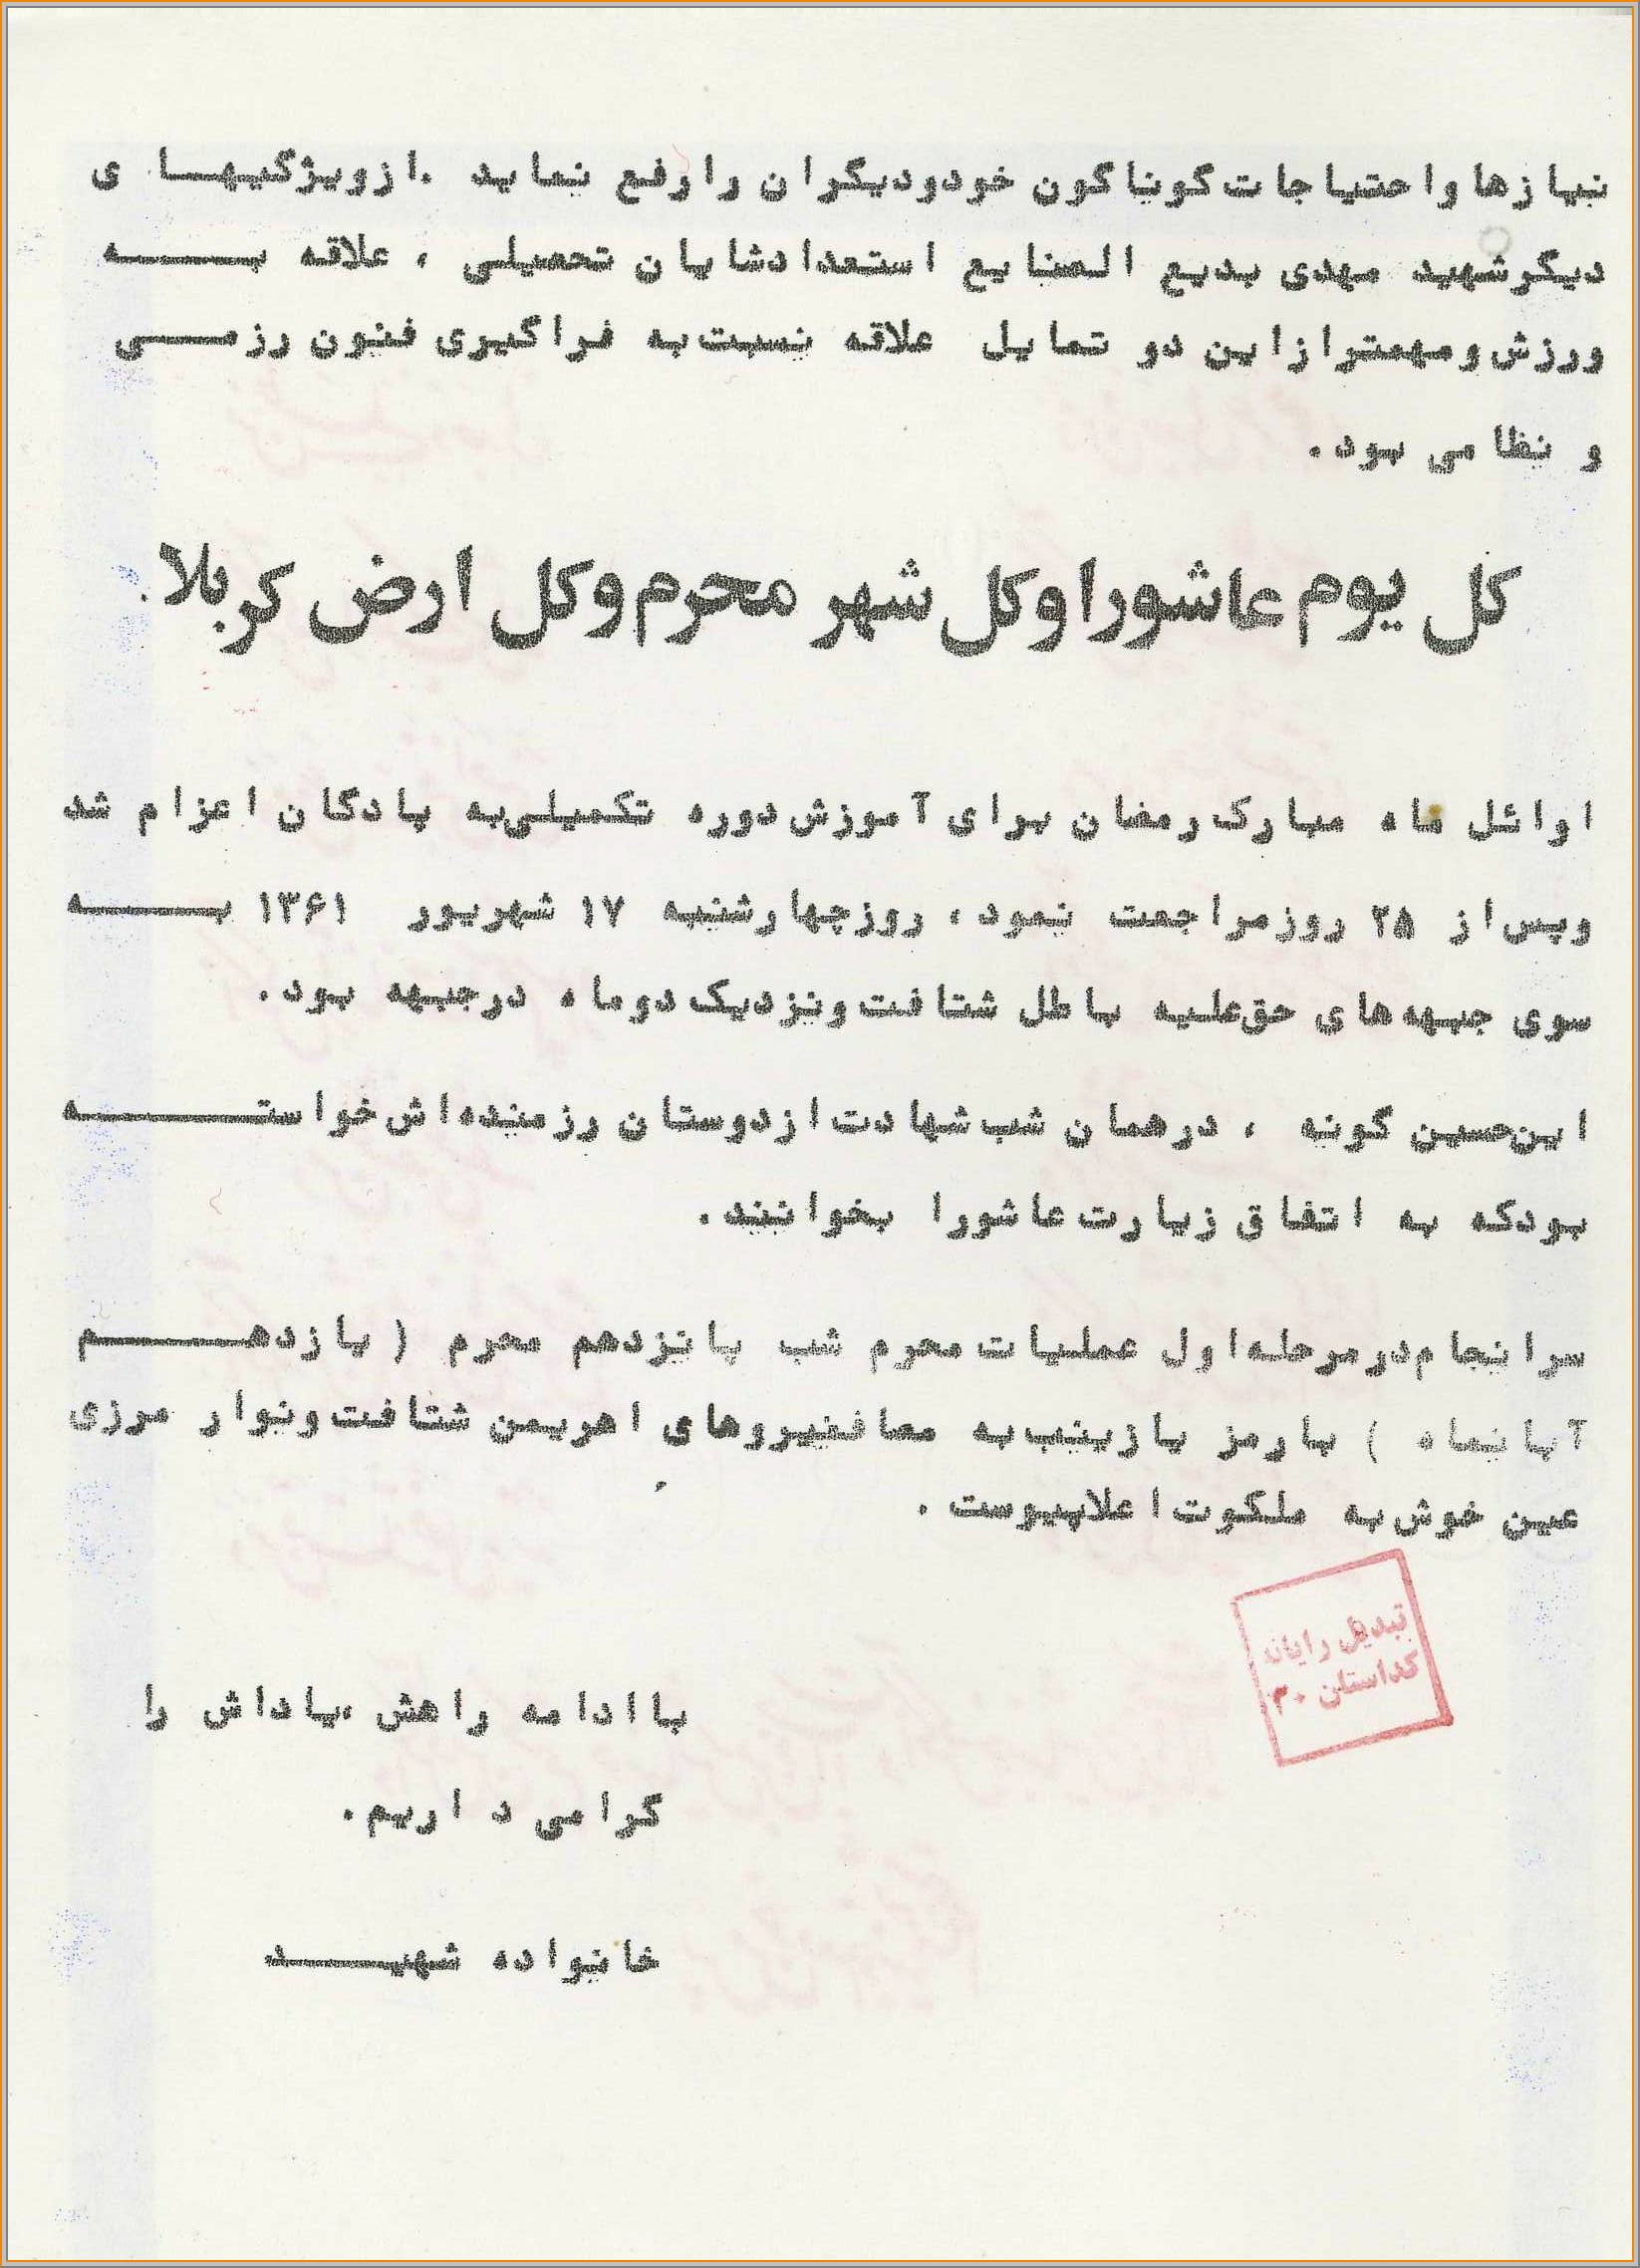 نیازها واحتیاجات گوناگون خودودیگران را رفع نماید .ازویژگیهای
دیگرشهید مهدی بدیع الصنایع استعدادشایان تحصیلی ، علاقه به
ورزش ومهمتر ازاین دو تمایل علاقه نسبت به فراگیری فنون رزمی
و نظامی بود.
کل یوم عاشورا وکل شهر محرم وکل ارض کربلا.
اوائل ماه مبارک رمضان برای آموزش دوره تکمیلی به پادگان اعزام شد
وپس از ۲۵ روزمراجعت نمود، روزچهارشنبه ۱۷ شهریور ۱۳۶۱ به
سوی جبهه‌های حق علیه باطل شتافت ونزدیک دوماه درجبهه بود.
این حسین گونه ، درهمان شب شهادت ازدوستان رزمنده‌اش خواسته
بودکه به اتفاق زیارت عاشورا بخوانند.
سرانجام درمرحله اول عملیات محرم شب پانزدهم محرم ( یازدهم
آبانماه ) بارمز یازینب به مصاف نیروهای اهریمن شتافت ونوار مرزی
عین خوش به ملکوت اعلا پیوست .
تبدیل رایانه
کداستان ۳۰
باادامه راهش ،یاداش را
گرامی داریم.
خانواده شهید